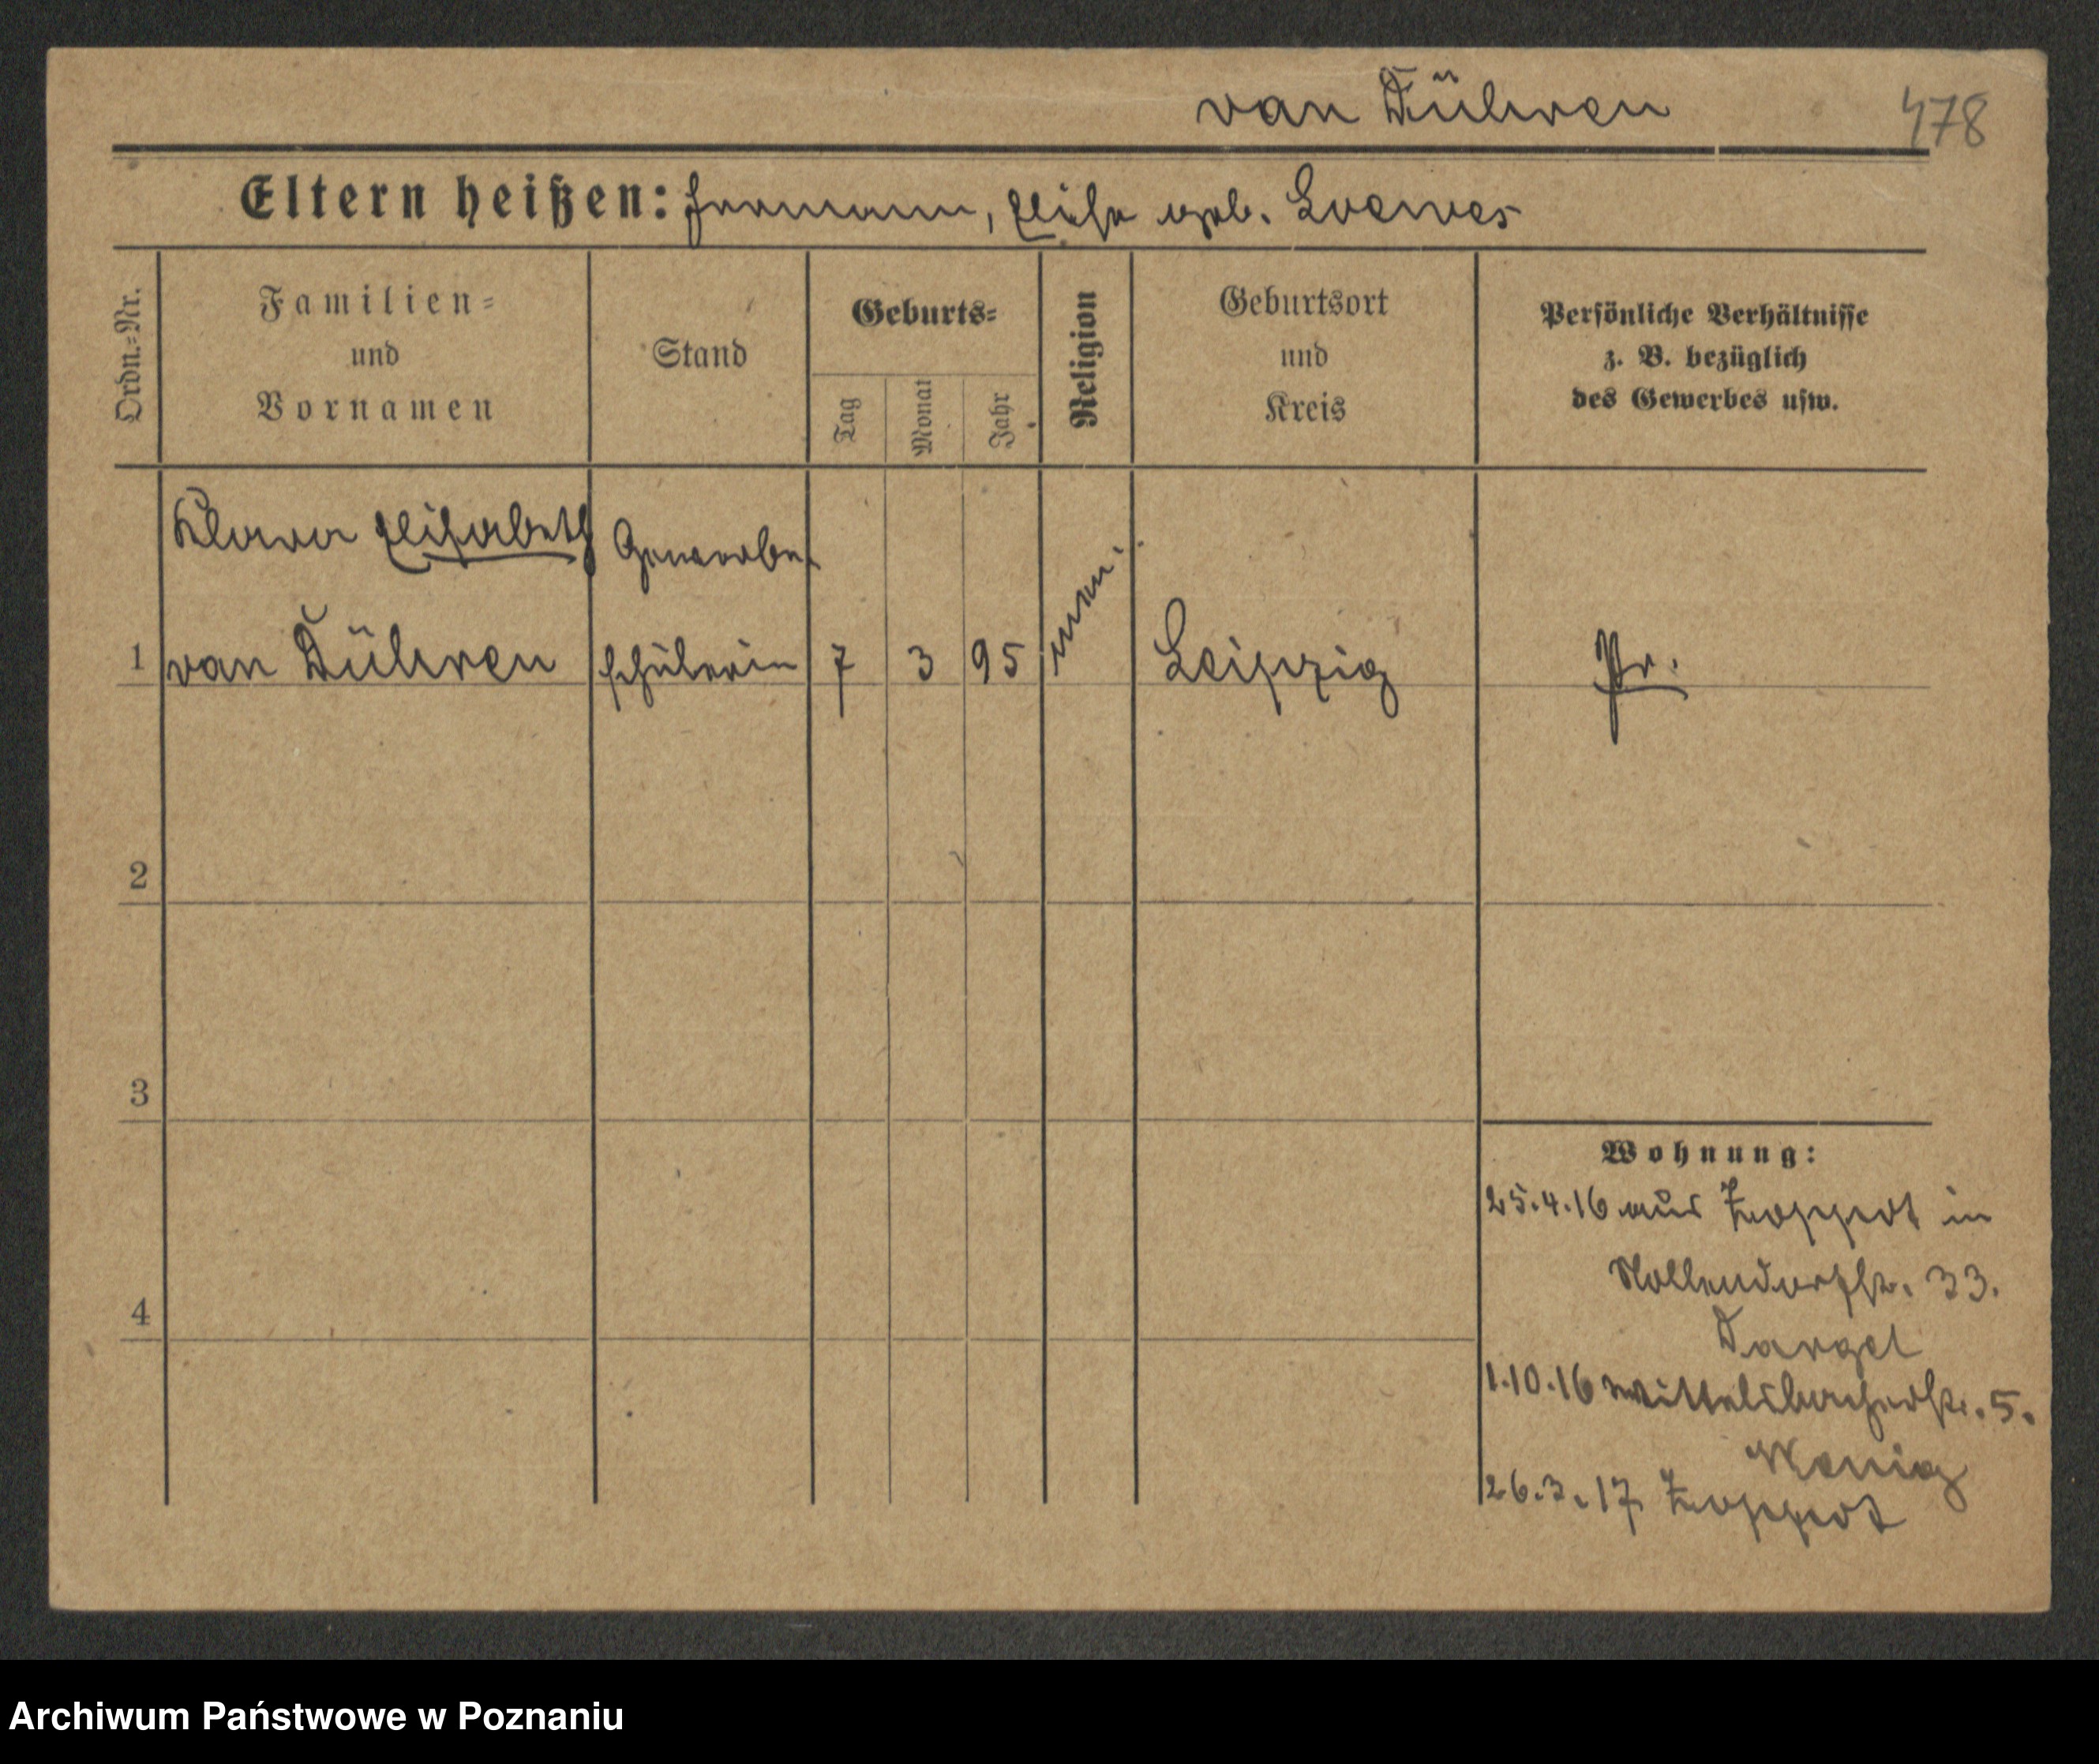 van Dühren
478
Eltern heißen: Hermann, Elise geb. Loewes
Ordn.=Nr.
Familien=
und
Vornamen
Stand
Geburts=
Tag
Monat
Jahr
Religion
Geburtsort
und
Kreis
Persönliche Verhältnisse
z. B. bezüglich
des Gewerbes usw.
Klara Elisabeth Gewerbe
1 van Dühren schülerin 7 3 95 Leipzig Pr.
2
3
4
Wohnung:
25.4.16 aus Zoppot in
Nollendorfstr. 33.
Target
1.10.16 Wittelsbacherstr. 5.
26.3.17 Zoppot
Archiwum Państwowe w Poznaniu